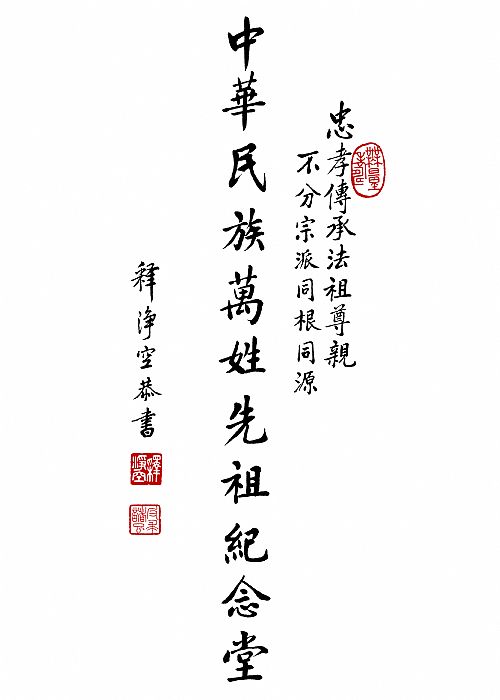 忠孝傳承法祖尊親
不分宗派同根同源
中華民族萬姓先祖紀念堂
釋淨空恭書
釋淨空